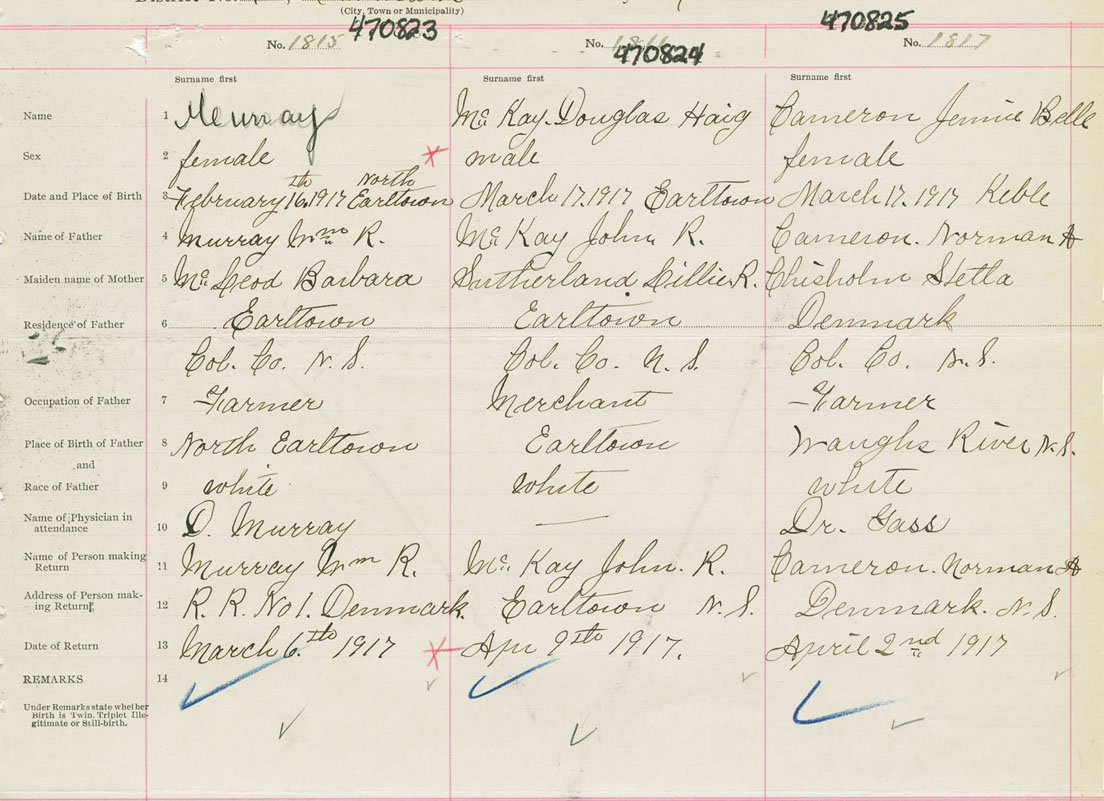 (City, Town or Municipality)
470823 470825
No. 1815 No. 470824 No. 1817
Surname first Surname first Surname first
Name 1 Murray Mc Kay. Douglas Haig Cameron Jennie Belle
Sex 2 female male female
North
Date and Place of Birth 3 February 16th, 1917 Earltown March 17. 1917 Earltown March 17. 1917 Keble
Name of Father 4 Murray Wm R. Mc Kay John R. Cameron. Norman A
Maiden name of Mother 5 Mc Leod Barbara Sutherland Lillie R. Chisholm Stella
Residence of Father 6 Earltown Earltown Denmark
Col. Co. N. S. Col. Co. N. S. Col. Co. N. S.
Occupation of Father 7 Farmer Merchant Farmer
Place of Birth of Father 8 North Earltown Earltown Waughs River N. S.
and
Race of Father 9 white white white
Name of Physician in
attendance 10 D. Murray — Dr. Gass
Name of Person making
Return 11 Murray Wm R. Mc Kay John. R. Cameron. Norman A
Address of Person mak-
ing Return 12 R. R. No 1. Denmark. Earltown N. S. Denmark. N. S.
Date of Return 13 March 6th 1917 Apr 9th 1917. April 2nd 1917
REMARKS 14
Under Remarks state whether
Birth is Twin, Triplet Ille-
gitimate or Still-birth.